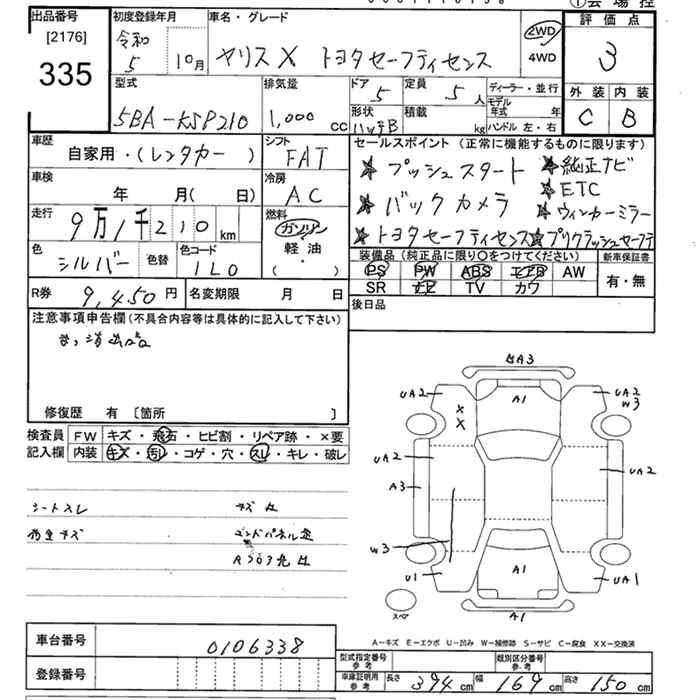 ①会場控
出品番号
[2176]
335
初度登録年月
令和
5 10月
車名・グレード
ヤリス X トヨタセーフティセンス
2WD
4WD
評価点
3
外装 内装
C B
型式
5BA-KSP210
排気量
1,000 cc
ドア
5
定員
5 人
形状
ハッチB
積載
kg
ディーラー・並行
モデル年式 年
ハンドル 左・右
車歴
自家用・(レンタカー )
シフト
FAT
車検
年 月( 日)
冷房
AC
走行
9万1千210 km
燃料
ガソリン
軽油
( ・ )
色
シルバー
色替
色コード
1L0
R券
9,450 円
名変期限 月 日
セールスポイント (正常に機能するものに限ります)
★プッシュスタート ★純正ナビ
★ETC
★バックカメラ ★ウィンカーミラー
★トヨタセーフティセンス ★プリクラッシュセーフティ
装備品 (純正品に限り○をつけてください)
PS PW ABS エアB AW
SR ナビ TV カワ
新車保証書
有・無
後日品
注意事項申告欄 (不具合内容等は具体的に記入して下さい)
修復歴 有 〔箇所 〕
検査員
記入欄
FW キズ・飛石・ヒビ割・リペア跡・×要
内装 キズ・汚レ・コゲ・穴・スレ・キレ・破レ
シートスレ
A3
UA2 A1 UA2
W3
×
×
UA2 UA2
A3
W3
U1 A1 UA1
スペア
A1
A-キズ E-エクボ U-凹み W-補修跡 S-サビ C-腐食 XX-交換済
車台番号 0106338
登録番号
型式指定番号
参考
類別区分番号
参考
車庫証明用
参考
長さ 394 cm 幅 169 cm 高さ 150 cm